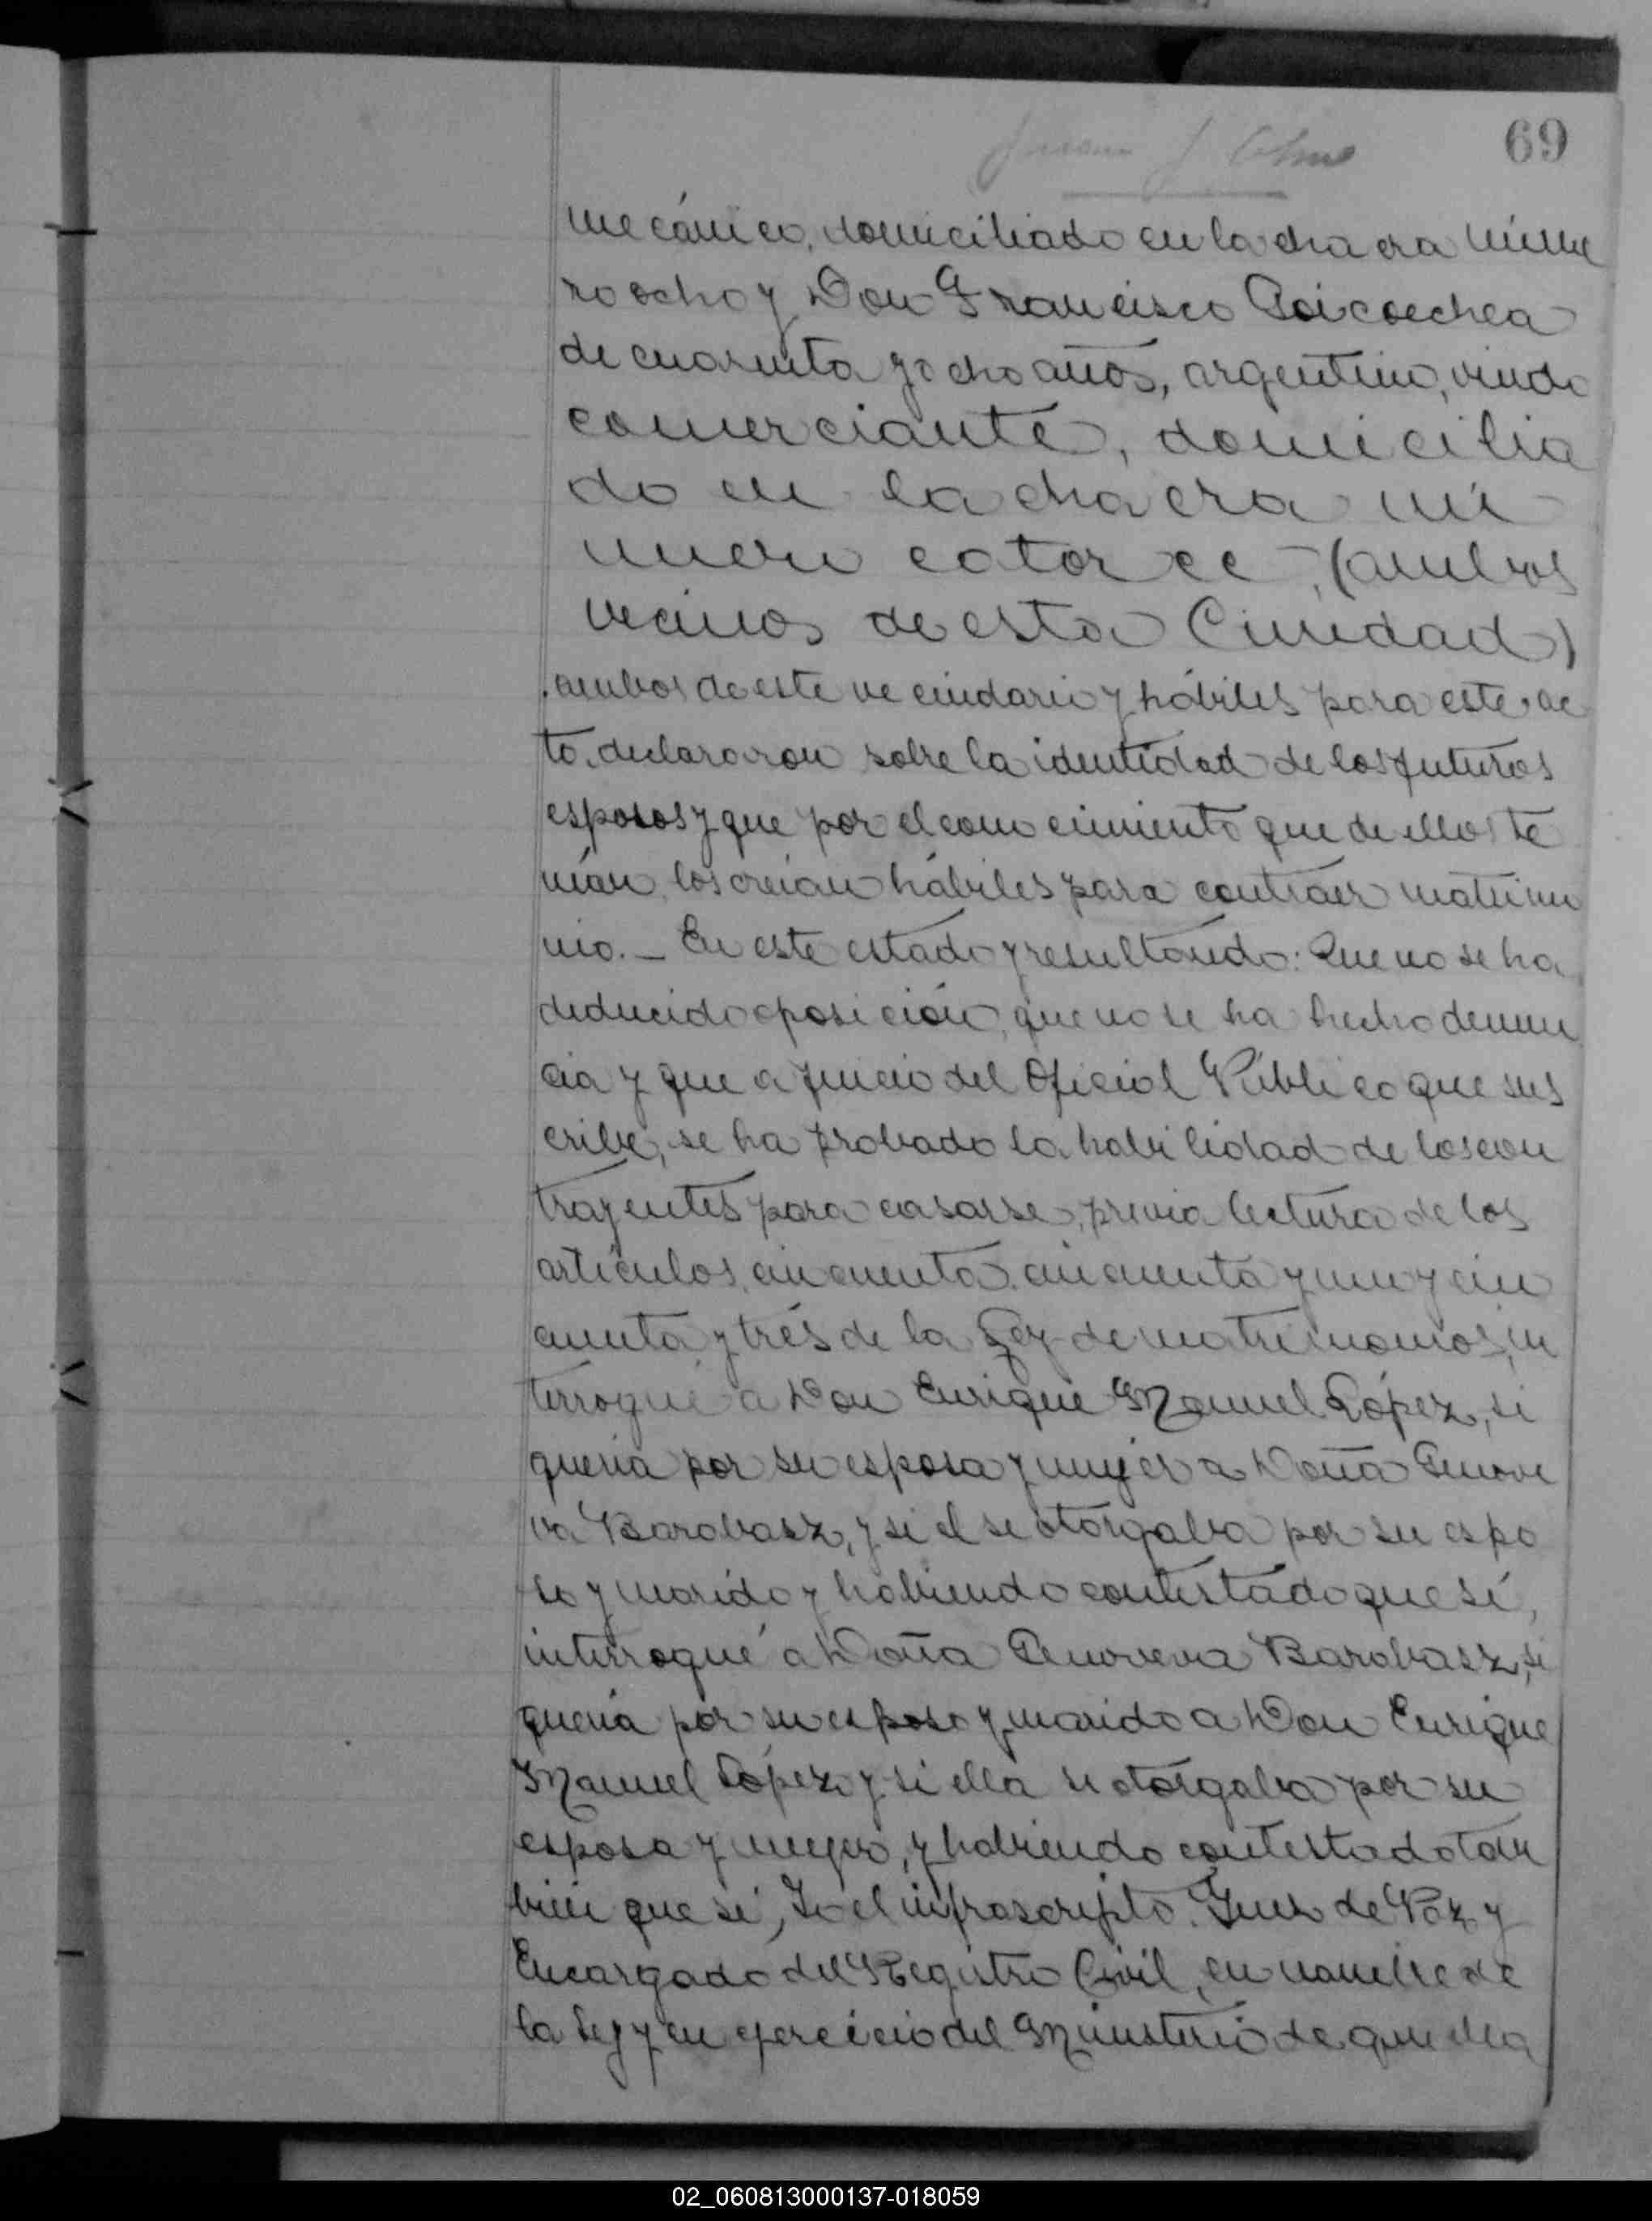 69
mecánico, domiciliado en la chacra núme
ro ocho y Don Francisco Goicoechea
de cuarenta y ocho años, argentino, viudo
comerciante, domicilia
do en la chacra nú
mero catorce, (ambos
vecinos de esta Ciudad)
ambos de este vecindario y hábiles para este ac
to, declararon sobre la identidad de los futuros
esposos y que por el conocimiento que de ellos te
nían, los creían hábiles para contraer matrimo
nio. _ En este estado y resultando: Que no se ha
deducido oposición, que no se ha hecho denun
cia y que a juicio del Oficial Público que sus
cribe, se ha probado la habilidad de los con
trayentes para casarse, previa lectura de los
artículos, cincuenta, cincuenta y uno y cin
cuenta y trés de la Ley de matrimonios, in
terrogué a Don Enrique Manuel López, si
quería por su esposa y mujer a Doña Genove
va Barabasz, y si el se otorgaba por su espo
so y marido y habiendo contestado que sí,
interrogué a Doña Genoveva Barabasz, si
quería por su esposo y marido a Don Enrique
Manuel López y si ella se otorgaba por su
esposa y mujer, y habiendo contestado tam
bién que sí, Yo el infrascripto. Juez de Paz y
Encargado del Registro Civil, en nombre de
la Ley y en ejercicio del Ministerio de que ella
02_060813000137-018059